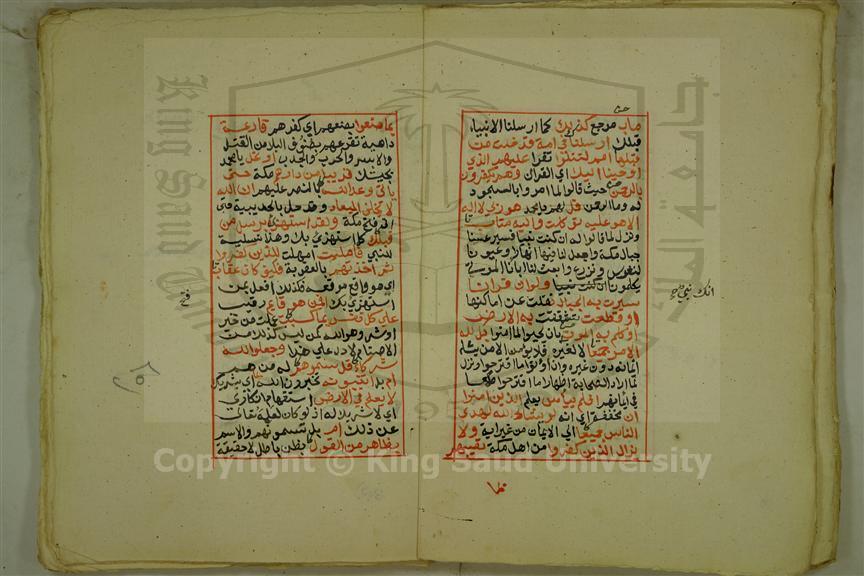 ماب مرجع كذلك كما ارسلنا الانبياء
قبلك ارسلناك في امة قد خلت من
قبلها امم لتتلو تقرا عليهم الذي
اوحينا اليك اي القران وهم يكفرون
بالرحمن حيث قالوا لما امروا بالسجود
له وما الرحمن قل لهم يا محمد هو ربي لا اله
الا هو عليه توكلت واليه متاب
ونزل لما قالوا له ان كنت نبيا فسير عنا
جبال مكة واجعل لنا فيها انهارا وعيونا
لنغرس ونزرع وابعث لنا اباءنا الموتى
يكلمونا انك نبي ولو ان قرانا
سيرت به الجبال نقلت عن اماكنها
او قطعت شققت به الارض
او كلم به الموتى بان يحيوا لما امنوا بل لله
الامر جميعا لا لغيره فلا يؤمن الا من شاء
ايمانه دون غيره وان اوتوا ما اقترحوا ونزل
لما اراد الصحابة اظهار ما اقترحوا طمعا
في ايمانهم افلم ييأس يعلم الذين امنوا
ان مخففة اي انه لو يشاء الله لهدى
الناس جميعا الى الايمان من غير اية ولا
يزال الذين كفروا من اهل مكة تصيبهم
انك نبي
بما صنعوا بصنعهم اي كفرهم قارعة
داهية تقرعهم بصنوف البلاء من القتل
والاسر والحرب والجدب او تحل يا محمد
بجيشك قريبا من دارهم مكة حتى
ياتي وعد الله بالنصر عليهم ان الله
لا يخلف الميعاد وقد حل بالحديبية حتى
اتى فتح مكة ولقد استهزئ برسل من
قبلك كما استهزئ بك وهذا تسلية
للنبي فامليت امهلت للذين كفروا
ثم اخذتهم بالعقوبة فكيف كان عقاب
اي هو واقع موقعه فكذلك افعل بمن
استهزئ بك افمن هو قائم رقيب
على كل نفس بما كسبت عملت من خير
او شر وهو الله كمن ليس كذلك من
الاصنام لا دل على هذا وجعلوا لله
شركاء قل سموهم له من هم
ام بل اتنبئونه تخبرون الله اي بشريك
لا يعلم في الارض استفهام انكاري
اي لا شريك له اذ لو كان لعلمه تعالى
عن ذلك ام بل تسمونهم
بظاهر من القول بظن باطل لا حقيقة
Copyright © King Saud University
King Saud University
جامعة الملك سعود